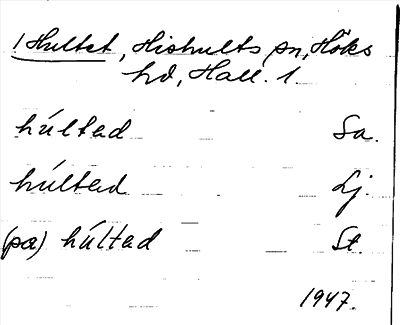 1 Hultet, Hishults sn, Höks
hd, Hall. 1.
húltad Sa.
húltad Lj.
(pα) húltad St.
1947.